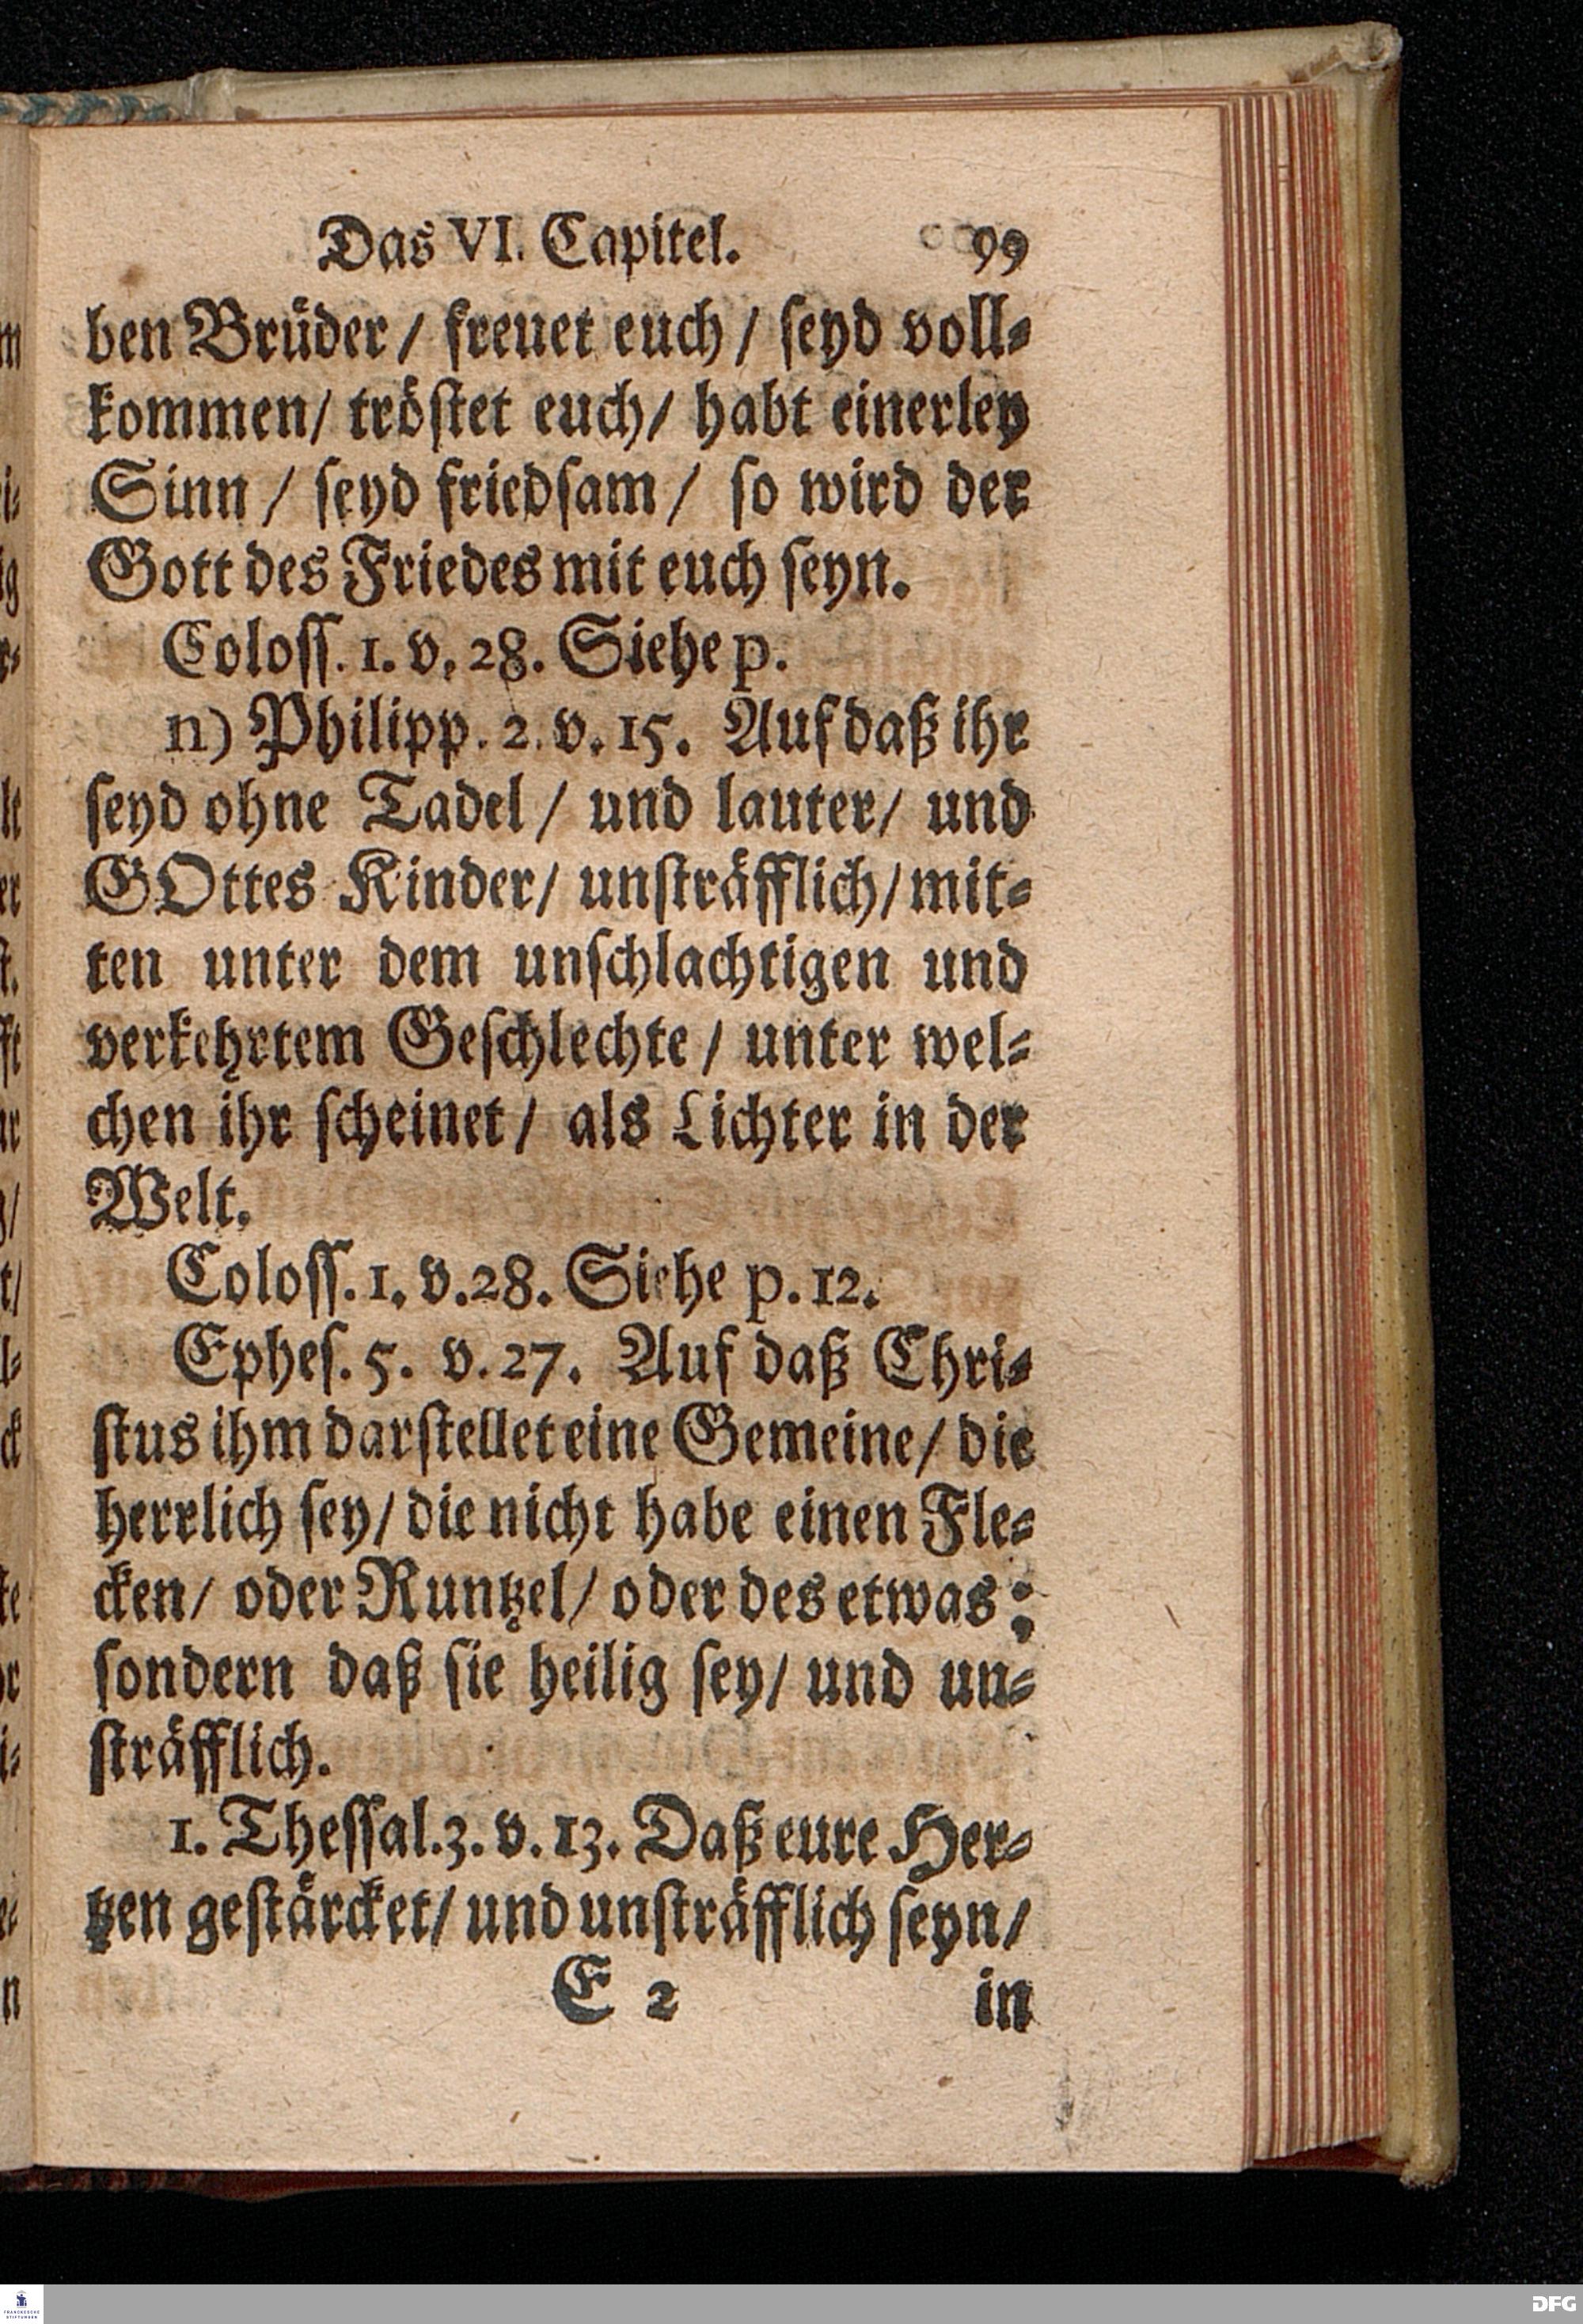 Das VI. Capitel. 99
ben Brüder / freuet euch / seyd voll⸗
kommen/ tröstet euch/ habt einerley
Sinn / seyd friedsam / so wird der
Gott des Friedes mit euch seyn.
Coloss. 1. v. 28. Siehe p.
n) Philipp. 2. v. 15. Auf daß ihr
seyd ohne Tadel / und lauter/ und
GOttes Kinder/ unsträfflich/ mit⸗
ten unter dem unschlachtigen und
verkehrtem Geschlechte / unter wel⸗
chen ihr scheinet / als Lichter in der
Welt.
Coloss. 1. v. 28. Siehe p. 12.
Ephes. 5. v. 27. Auf daß Chri⸗
stus ihm darstellet eine Gemeine/ die
herrlich sey/ die nicht habe einen Fle⸗
cken/ oder Runtzel/ oder des etwas;
sondern daß sie heilig sey/ und un⸗
sträfflich.
1. Thessal. 3. v. 13. Daß eure Her⸗
tzen gestärcket/ und unsträfflich seyn/
E 2 in
FRANCKESCHE
STIFTUNGEN
DFG